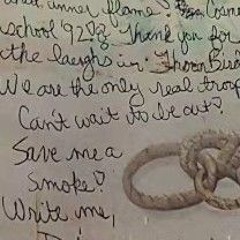 inner flame!
school '92?? Thank you for
the laughs in Three
We are the only real troop
Can't wait to be out?
Save me a
smoke?
Write me,